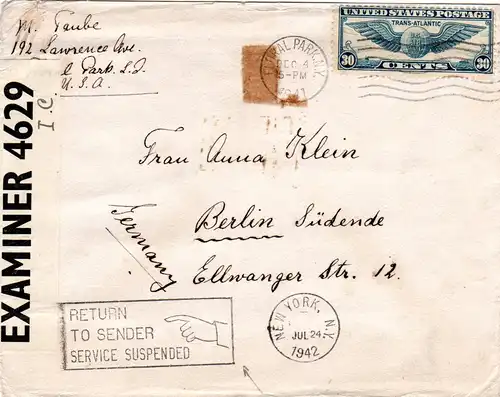 M. Taube
192 Lawrence Ave.
Park. L.I.
U.S.A.
EXAMINER 4629
I.C
PARK, N.Y.
DEC 4
5-PM
1941
UNITED STATES POSTAGE
TRANS-ATLANTIC
30 CENTS 30
Frau Anna Klein
Berlin Südende
Germany
Ellwanger Str. 12.
RETURN
TO SENDER
SERVICE SUSPENDED
NEW YORK, N.Y.
JUL 24
1942